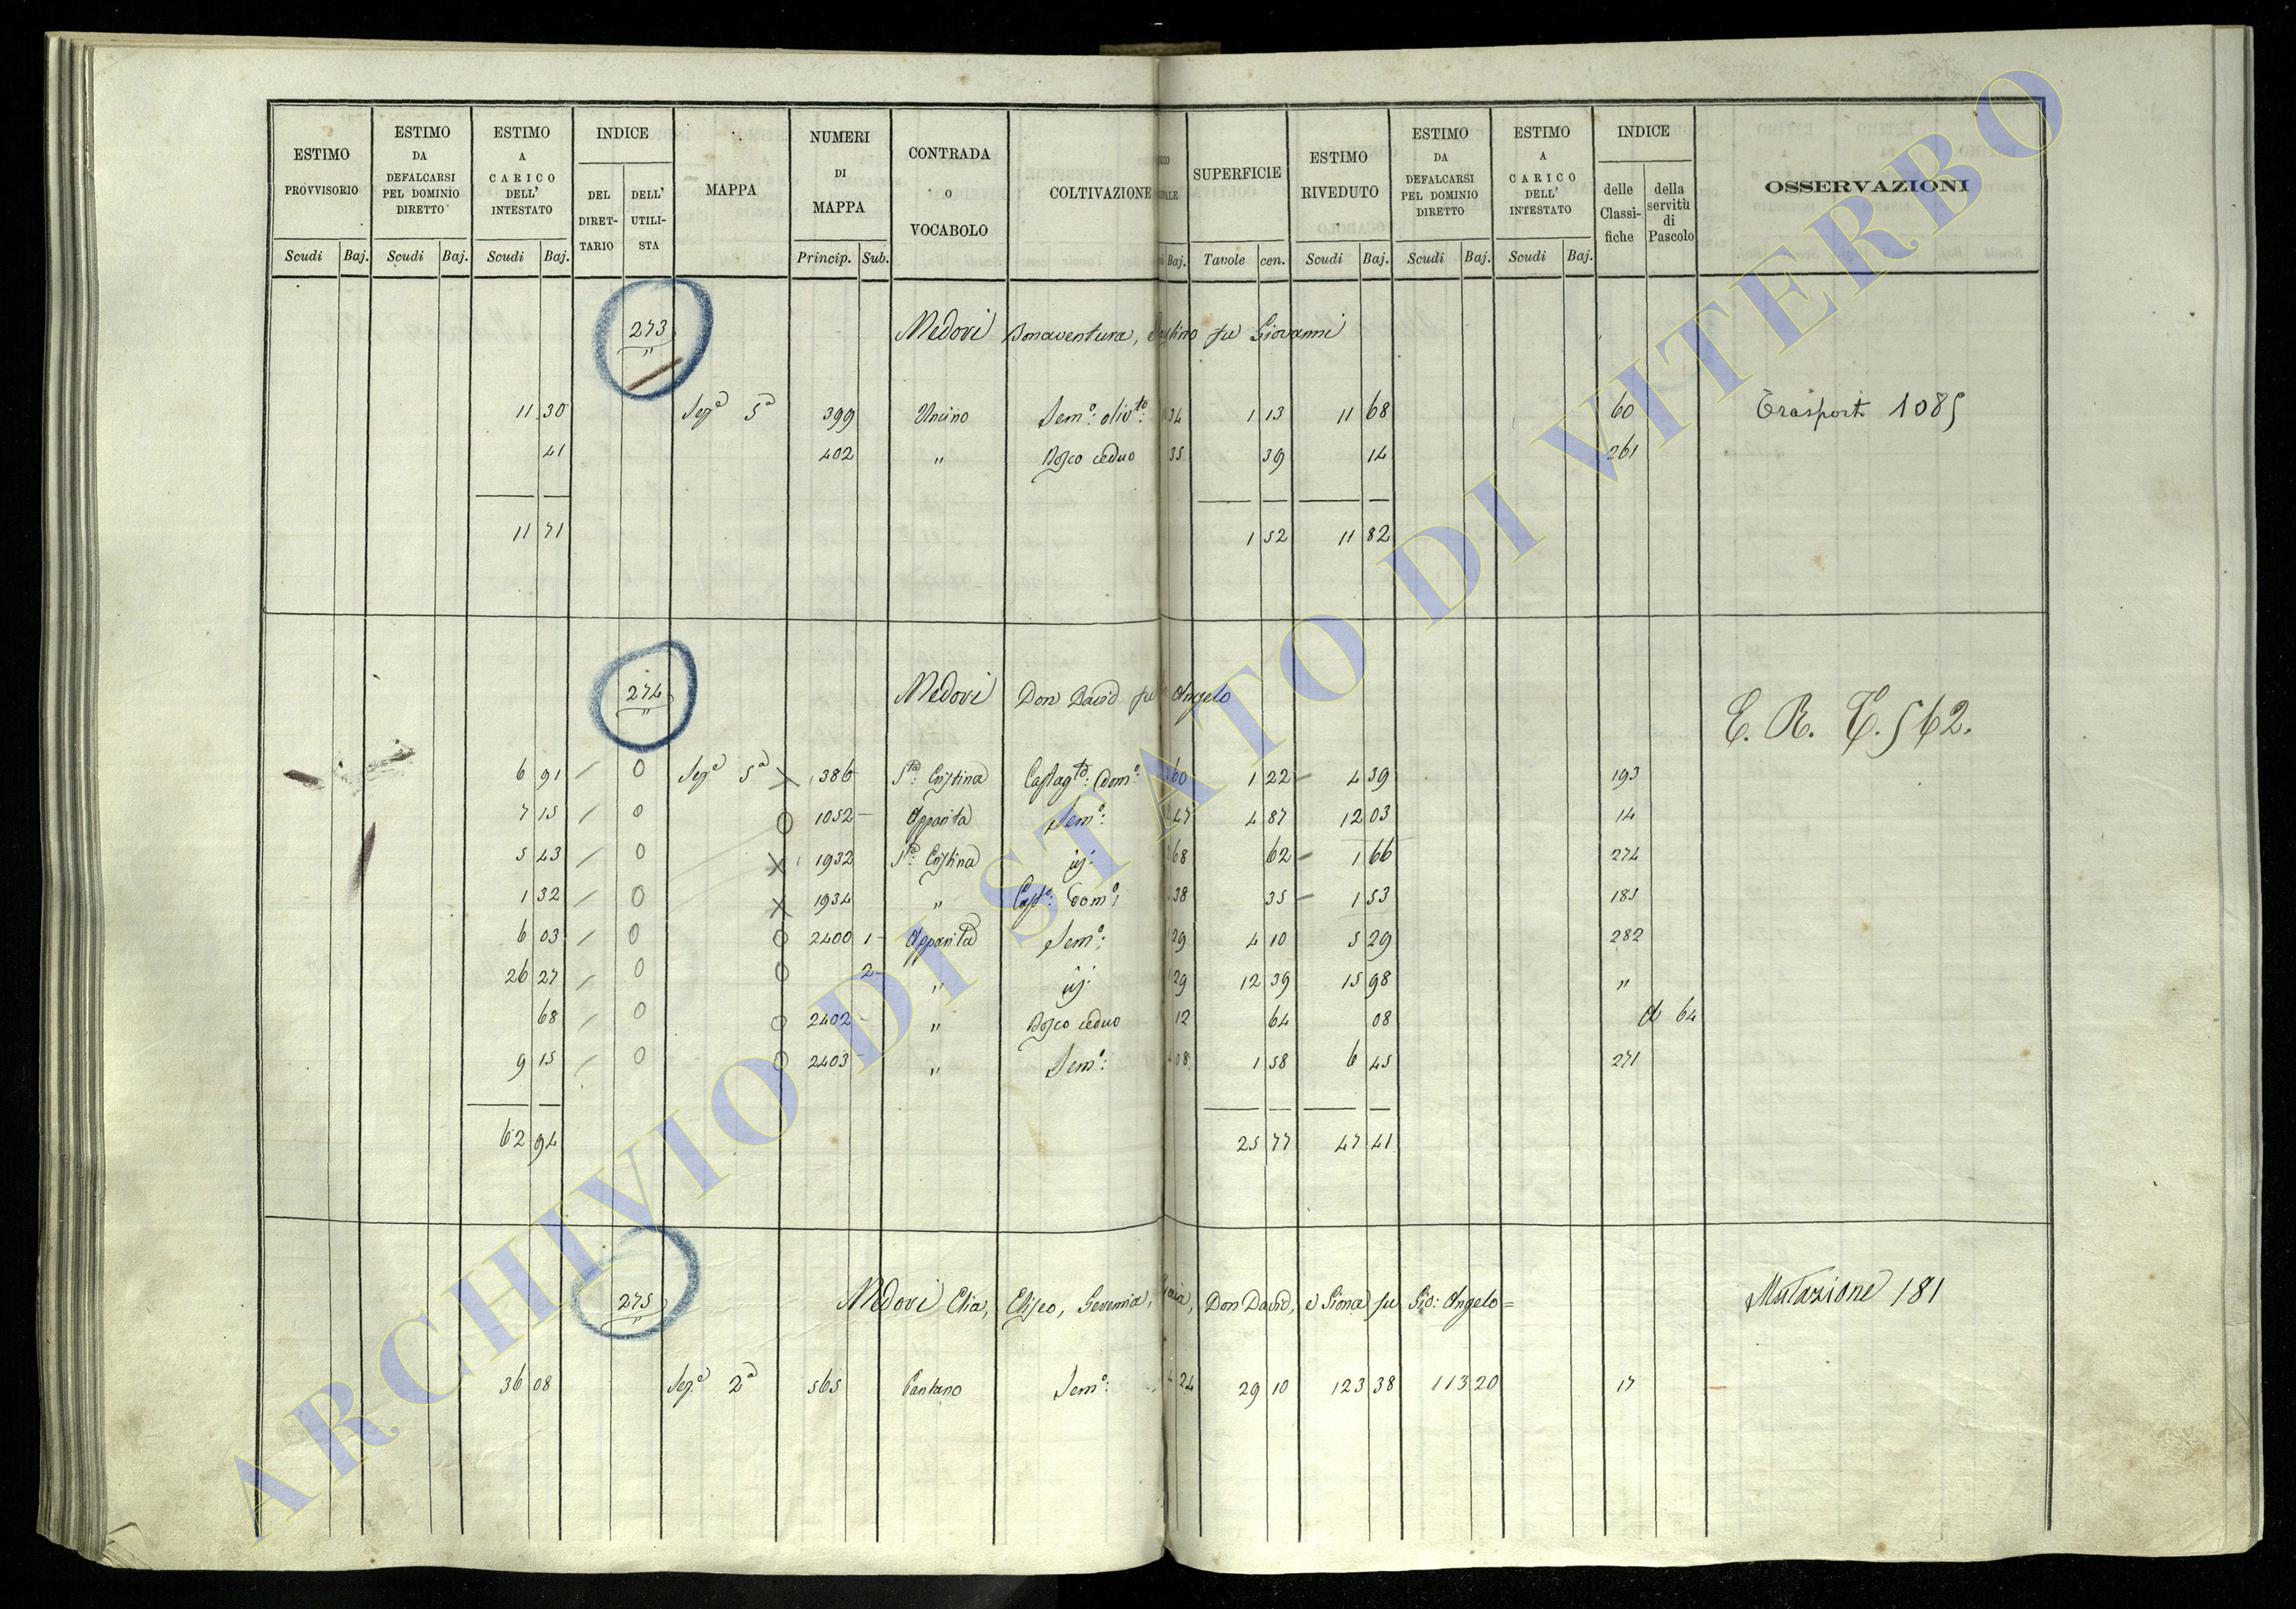 ESTIMO PROVVISORIO
Scudi Baj.
ESTIMO DA DEFALCARSI PEL DOMINIO DIRETTO
Scudi Baj.
ESTIMO A CARICO DELL' INTESTATO
Scudi Baj.
INDICE
DEL DIRET-TARIO
DELL' UTILI-STA
MAPPA
NUMERI DI MAPPA
Princip. Sub.
CONTRADA o VOCABOLO
COLTIVAZIONE
Baj.
SUPERFICIE
Tavole cen.
ESTIMO RIVEDUTO
Scudi Baj.
ESTIMO DA DEFALCARSI PEL DOMINIO DIRETTO
Scudi Baj.
ESTIMO A CARICO DELL' INTESTATO
Scudi Baj.
INDICE
delle Classi-fiche
della servitù di Pascolo
OSSERVAZIONI
273 Medori Bonaventura, fu Giovanni
11 30 Sez.ª 5ª 399 Uncino Sem.º: oliv.to: 34 1 13 11 68 60 Trasport. 1085
41 402 " Bosco ceduo 35 39 14 261
11 71 1 52 11 82
274 Medori Don David fu Angelo
E. R. T. 562.
6 91 / 0 Sez.ª 5ª x 386 S.ta: Cristina Castag.to: Dom.º: 60 1 22 4 39 193
7 15 / 0 0 1052 Apparita Sem.º: 47 4 87 12 03 14
5 43 / 0 x 1932 S.ta: Cristina id: 68 62 1 66 274
1 32 / 0 x 1934 " Cast.º: Dom.º: 38 35 1 53 185
6 03 / 0 0 2400 1 Apparita Sem.º: 29 4 10 5 29 282
26 27 / 0 0 2 " id: 29 12 39 15 98 "
68 / 0 0 2402 " Bosco ceduo 12 64 08 A 64
9 15 / 0 0 2403 " Sem.º: 08 1 58 6 45 271
62 94 25 77 47 41
275 Medori Elia, Eliseo, Geremia, Don David, e Siona fu Gio: Angelo =
Mutazione 181
36 08 Sez.ª 2ª 565 Pantano Sem.º: 24 29 10 123 38 113 20 17
ARCHIVIO DI STATO DI VITERBO